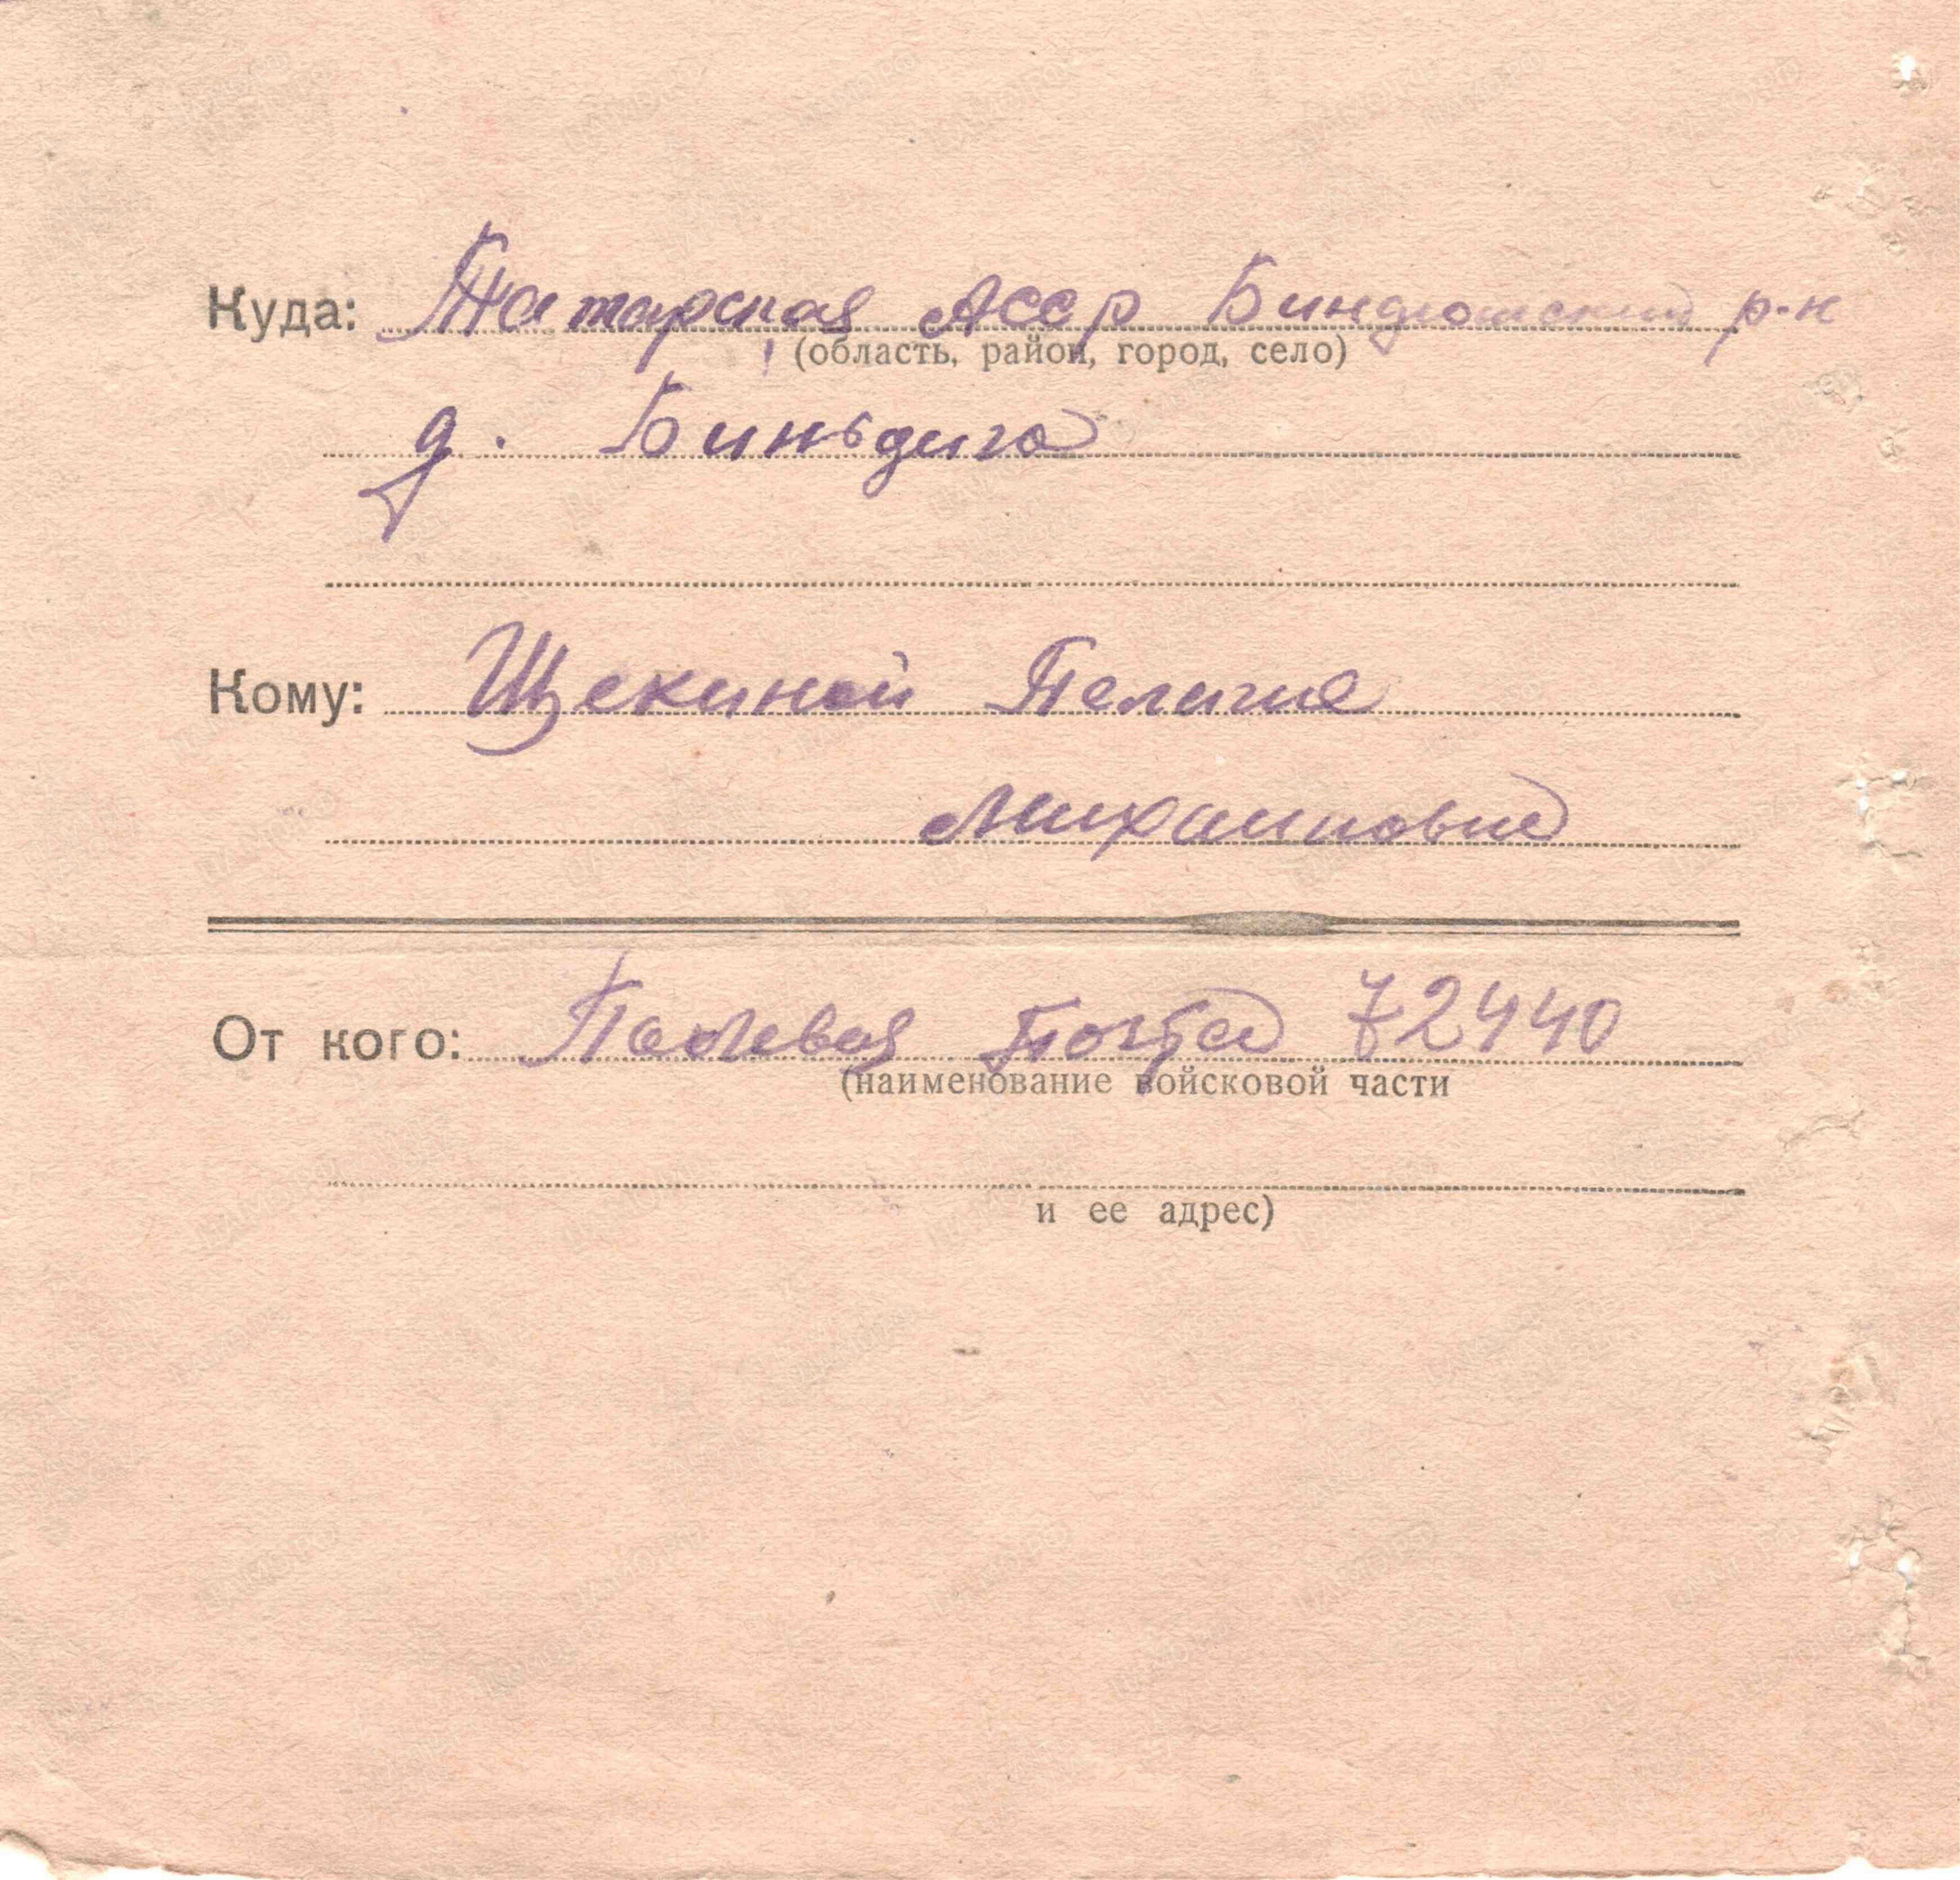 Куда: Татарская Асср Биндюшский р-н
(область, район, город, село)
д. Биньдига
Кому: Щекиной Пелагие
Михаиловне
От кого: Полевая Почта 72440
(наименование войсковой части
и ее адрес)